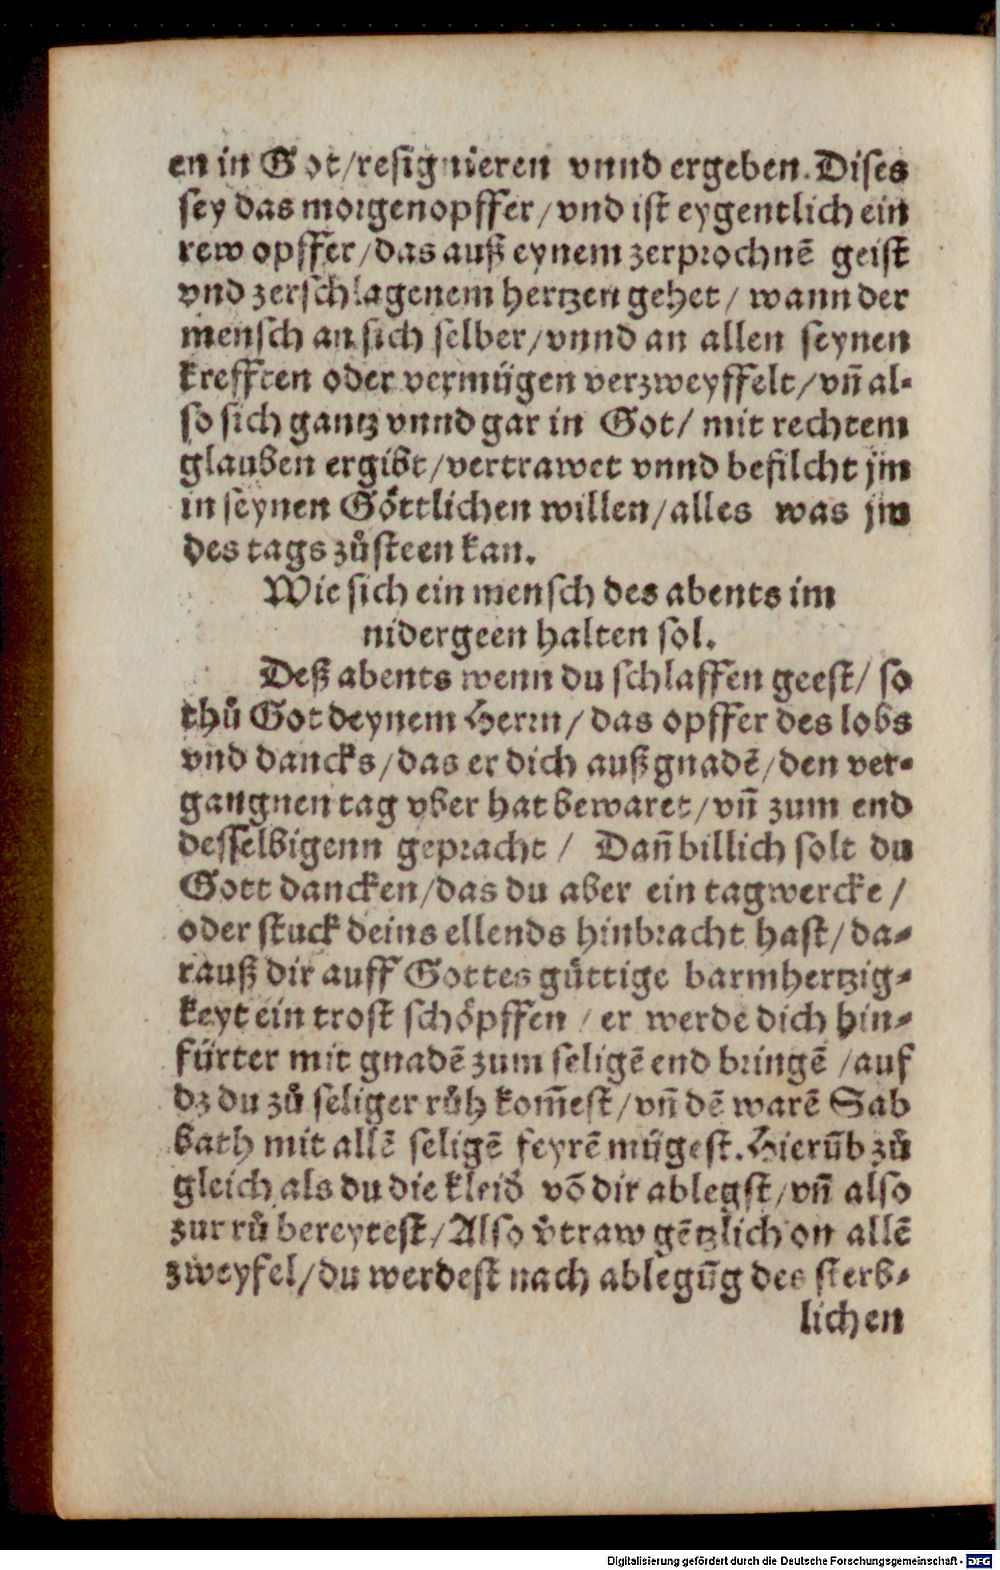 en in Got/resignieren vnnd ergeben. Dises
sey das morgenopffer/vnd ist eygentlich ein
rew opffer/das auß eynem zerprochnē geist
vnd zerschlagenem hertzen gehet/ wann der
mensch an sich selber/vnnd an allen seynen
krefften oder vermügen verzweyffelt/vñ al-
so sich gantz vnnd gar in Got/ mit rechtem
glauben ergibt/vertrawet vnnd befilcht jm
in seynen Göttlichen willen/alles was jm
des tags zůsteen kan.
Wie sich ein mensch des abents im
nidergeen halten sol.
Deß abents wenn du schlaffen geest/ so
thů Got deynem Herrn/ das opffer des lobs
vnd dancks/das er dich auß gnadē/den ver-
gangnen tag vber hat bewaret/vñ zum end
desselbigenn gepracht / Dañ billich solt du
Gott dancken/das du aber ein tagwercke /
oder stuck deins ellends hinbracht hast/da-
rauß dir auff Gottes güttige barmhertzig-
keyt ein trost schöpffen / er werde dich hin-
fürter mit gnadē zum seligē end bringē /auf
dz du zů seliger růh kom̄est/vñ dē warē Sab
bath mit allē seligē feyrē mügest. Hierūb zů
gleich als du die kleid vō dir ablegst/vñ also
zur rů bereytest/Also v̊traw gētzlich on allē
zweyfel/du werdest nach ablegūg des sterb-
lichen
Digitalisierung gefördert durch die Deutsche Forschungsgemeinschaft - DFG